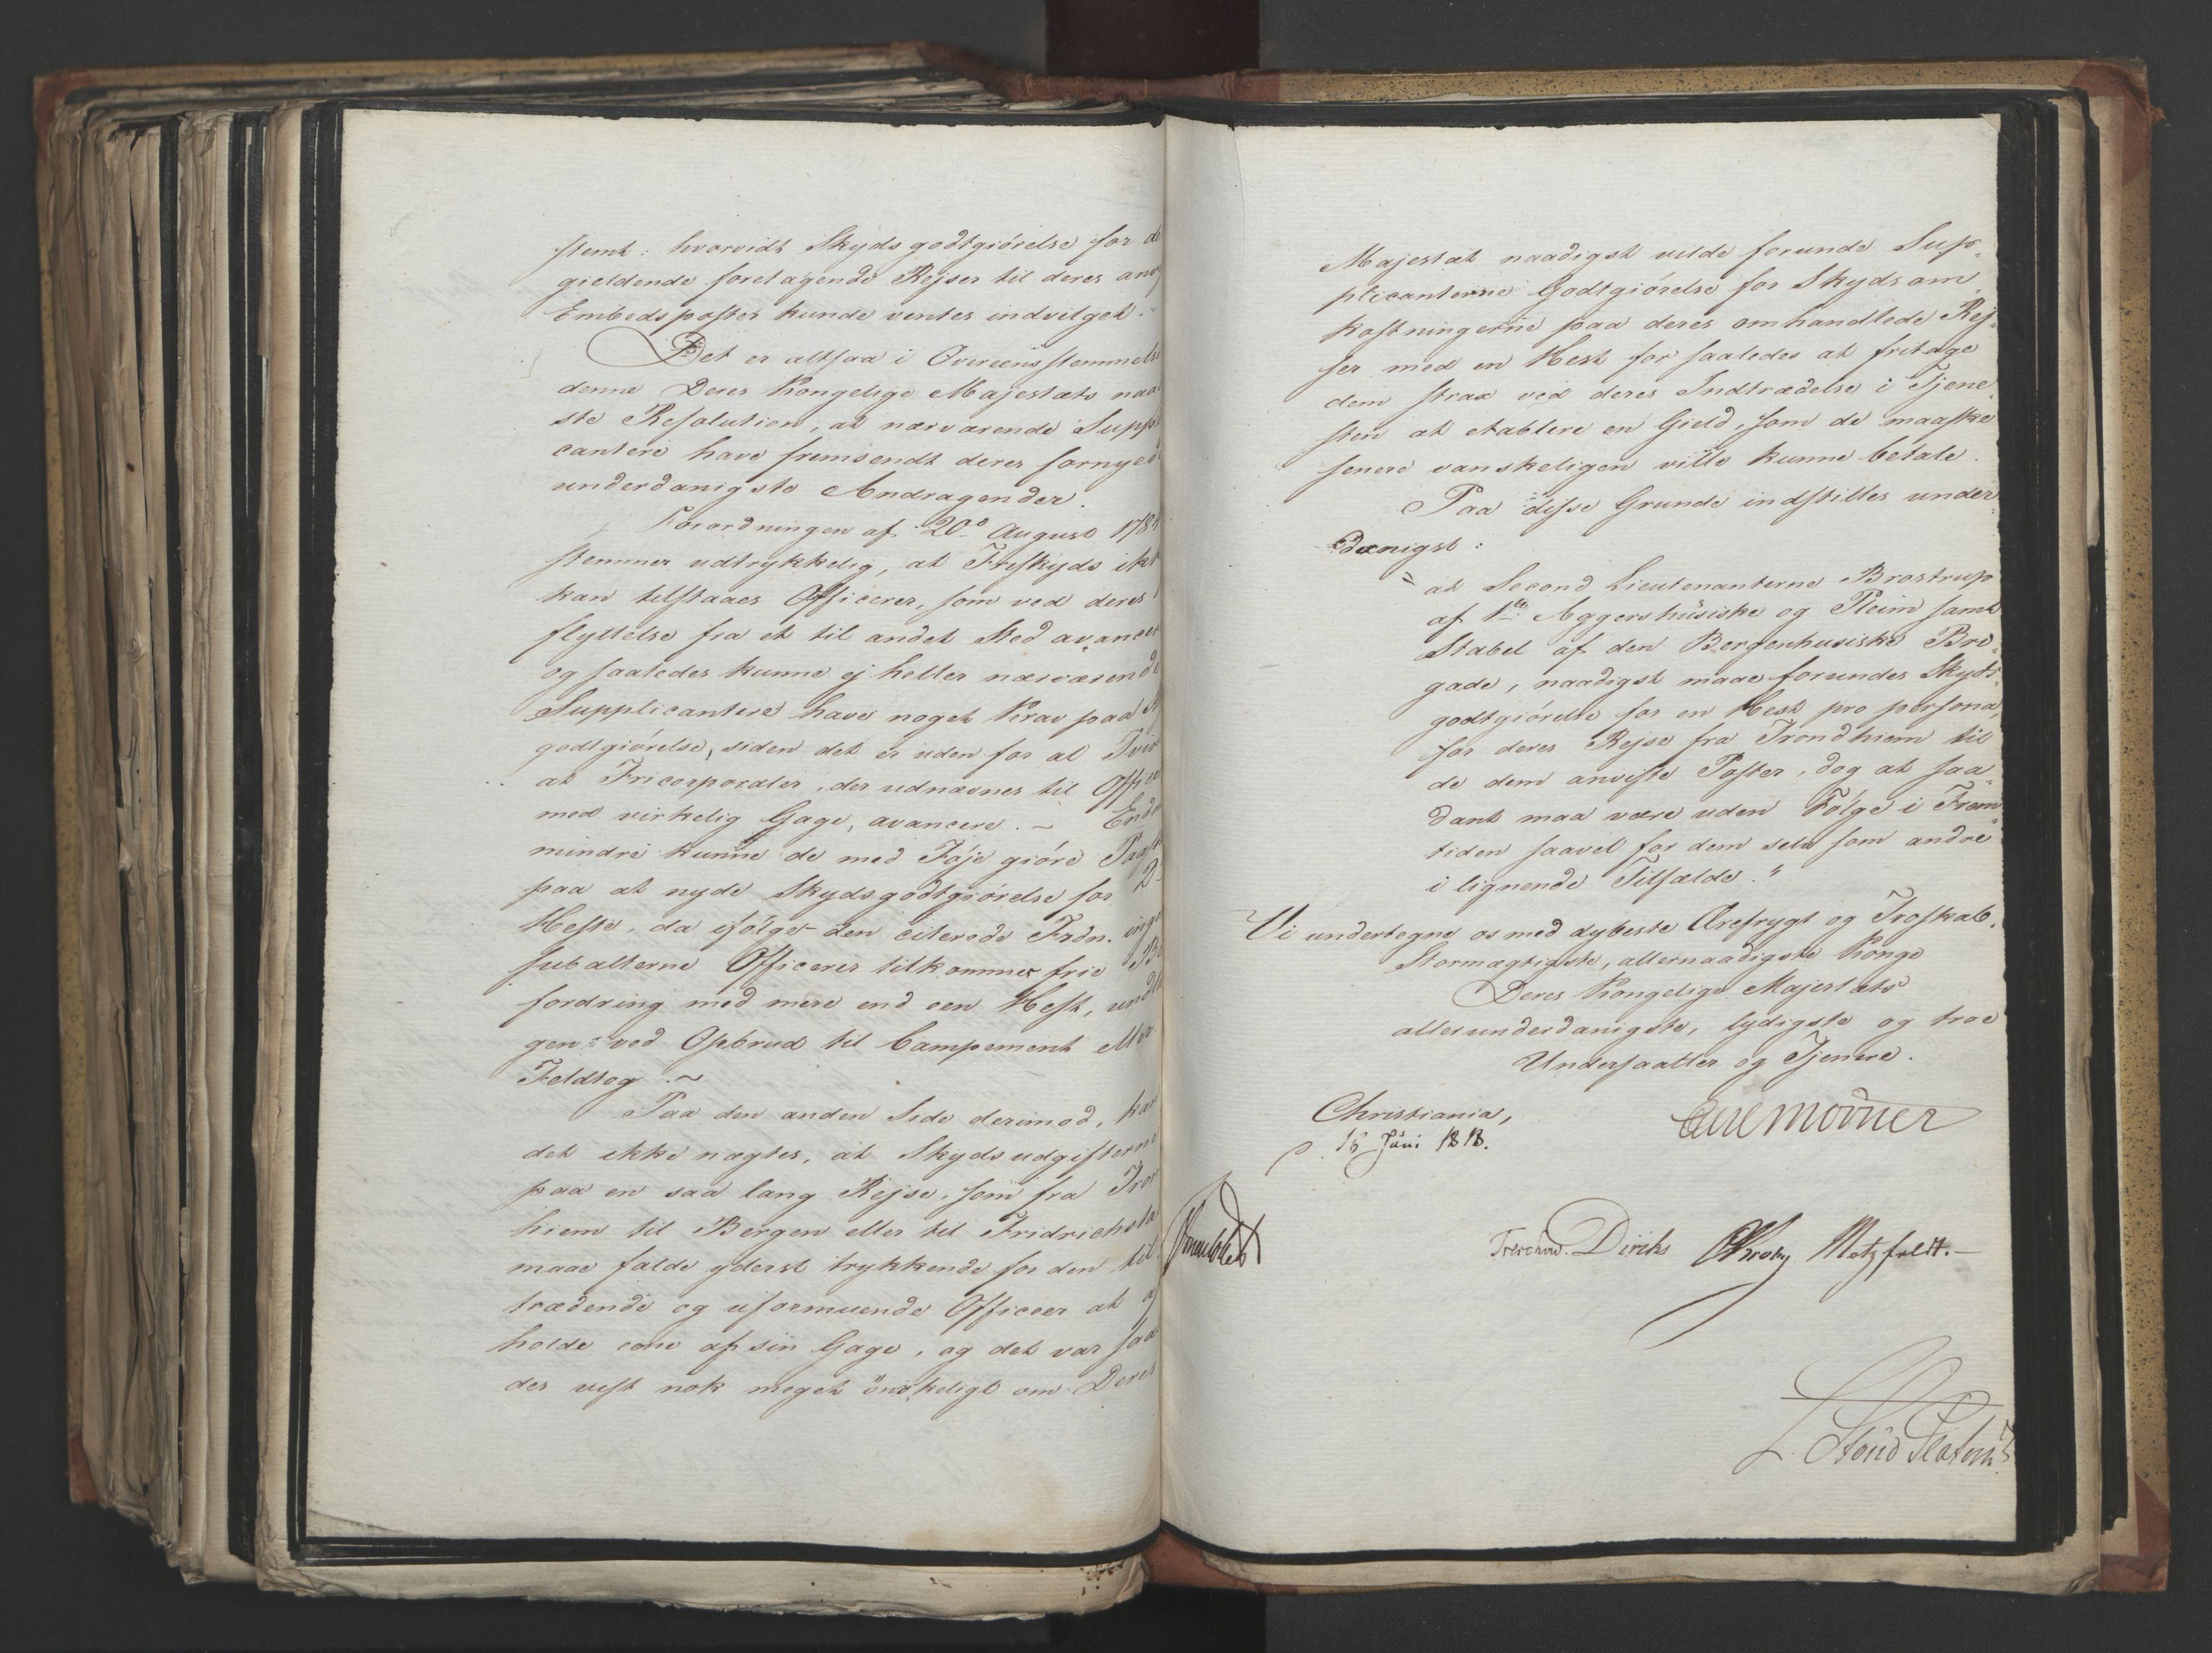 stemt: hvorvidt Skydsgodtgiörelse for de
gieldende foretagende Rejser til deres anv
Embedsposter kunde ventes indvilget.
Det er altsaa i Overeensstemmelse
denne Deres Kongelige Majestæts naa
ste Resolution, at nærværende Suppl
cantere have fremsendt deres fornyed
underdanigste Andragender.
Forordningen af 20de August 178
stemmer udtrykkelig, at Friskyds ikk
kan tilstaaes Officerer, som ved deres
flyttelse fra et til andet Sted avancer
og saaledes kunne ej heller nærværende
Supplicantere have noget Krav paa S
godtgiörelse, siden det er uden for al Tviv
at Fricorporaler, der udnævnes til Offi
med virkelig Gage, avancere. – End
mindre kunne de med Föje giöre Paas
paa at nyde Skydsgodtgiörelse for 2
Heste, da ifölge den citerede Frdn. ing
subalterne Officerer tilkommer frie Be
fordring med mere end een Hest, undt
gen ved Opbrud til Campement eller
Feldtog. –
Paa den anden Side derimod, kan
det ikke nægtes, at Skydsudgifterne
paa en saa lang Rejse, som fra Tron
hiem til Bergen eller til Fridrichsta
maae falde yderst trykkende for den til
trædende og uformuende Officeer at af
holde ene af sin Gage, og det var saa
des vist nok meget önskeligt om Deres
Majestæt naadigst vilde forunde Sup-
plicanterne Godtgiörelse for Skydsom-
kostningerne paa deres omhandlede Rej-
ser med en Hest for saaledes at fritage
dem strax ved deres Indtrædelse i Tjene-
sten at etablere en Gield, som de maaske
senere vanskeligen ville kunne betale.
Paa disse Grunde indstilles under-
danigst:
"at Second Lieutenanterne Brostrup
af 1ste Aggershusiske og Pleim samt
Stabel af den Bergenhusiske Bri-
gade, naadigst maae forundes Skyds-
godtgiörelse for en Hest pro persona
for deres Rejse fra Trondhiem til
de dem anviste Poster, dog at saa-
dant maa være uden Fölge i Frem-
tiden saavel for dem selv som andre
i lignende Tilfælde."
Vi undertegne os med dybeste Ærefrygt og Troskab.
Stormægtigste, allernaadigste Konge
Deres Kongelige Majestæts
allerunderdanigste, lydigste og troe
Undersaatter og Tjenere.
Christiania,
d. 16 Juni 1818.
Carl Mörner
Treschow. Diriks Krohg Motzfeldt. –